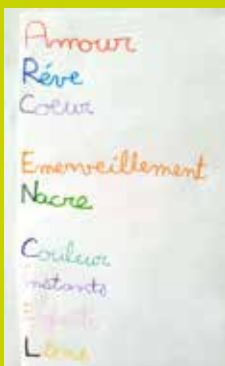 Amour
Réve
Coeur
Emerveillement
Nacre
Couleur
Instants